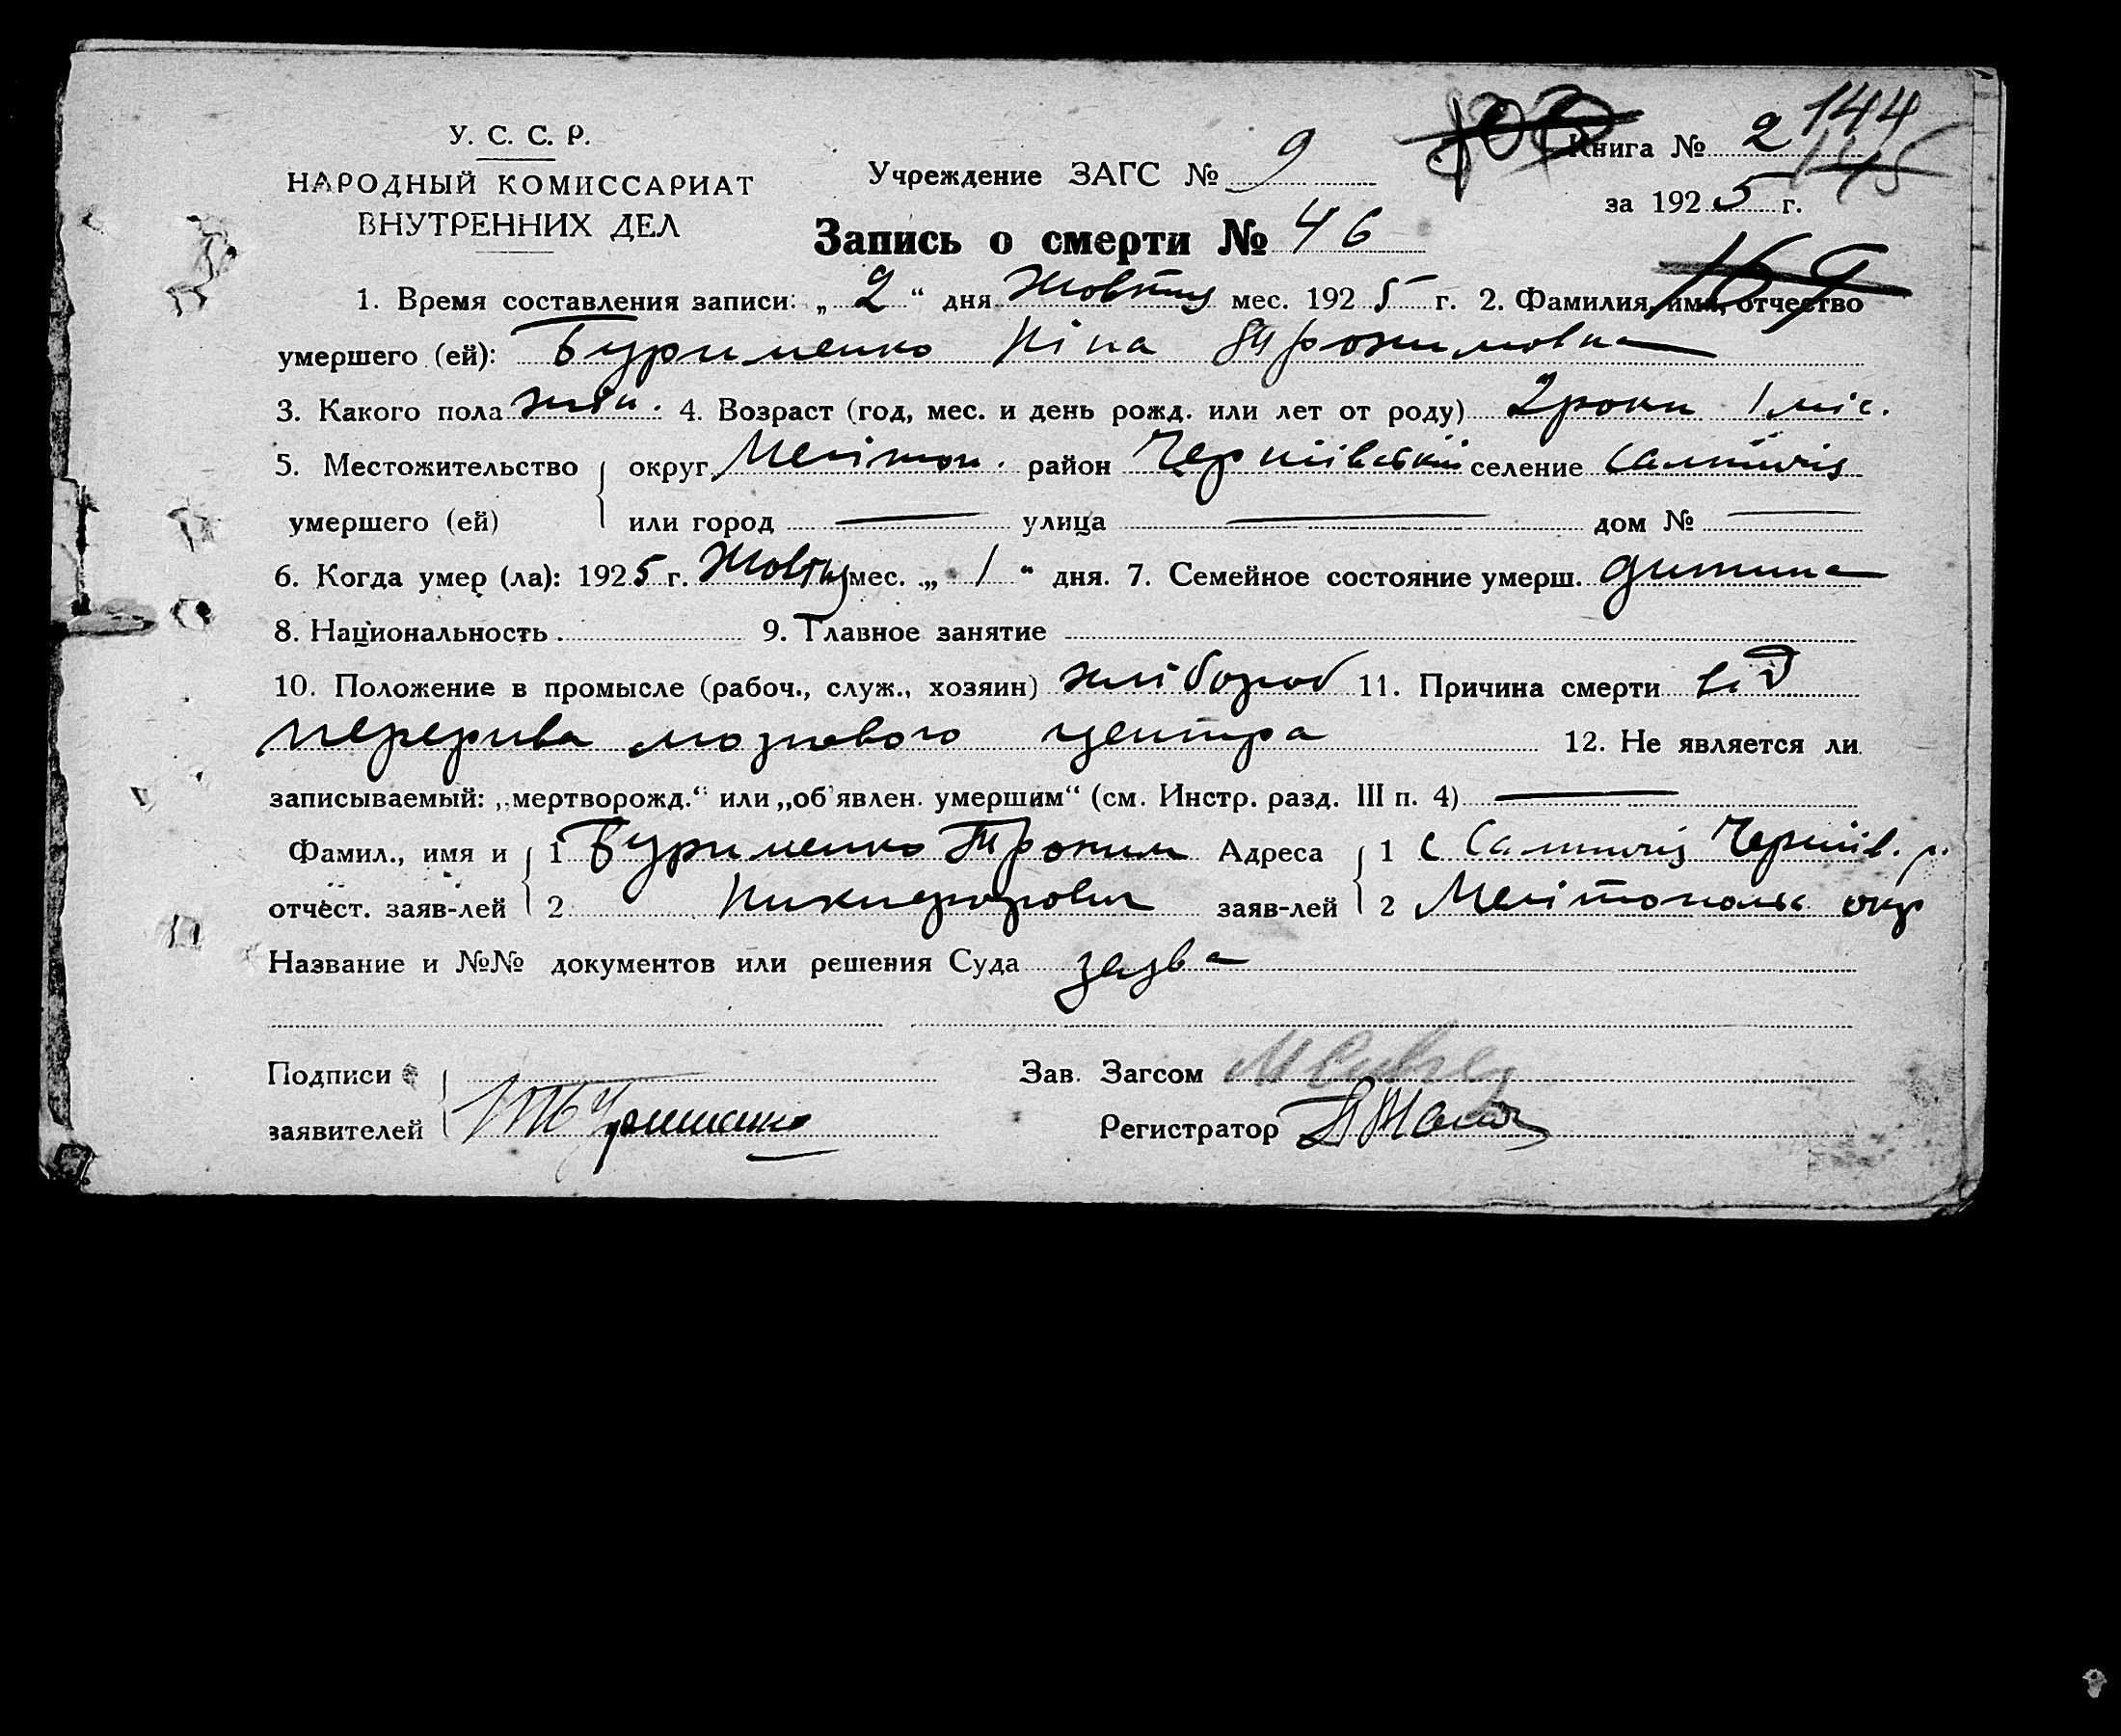 144
У. С. С. Р.
НАРОДНЫЙ КОМИССАРИАТ
ВНУТРЕННИХ ДЕЛ
Учреждение ЗАГС № 9
Книга № 2
145
за 1925 г.
Запись о смерти № 46
169
1. Время составления записи: „2“ дня Жовтня мес. 1925 г. 2. Фамилия, имя, отчество
умершего (ей): Бурименко Ніна Трохимовна
3. Какого пола жін. 4. Возраст (год, мес. и день рожд. или лет от роду) 2 роки 1 міс.
5. Местожительство округ Меліноп. район селение
умершего (ей) или город — улица — дом № —
6. Когда умер (ла): 1925 г. Жовтня мес. „1“ дня. 7. Семейное состояние умерш. дитина
8. Национальность 9. Главное занятие
10. Положение в промысле (рабоч., служ., хозяин) хлібороб 11. Причина смерти від
перерива мозгового центра 12. Не является ли
записываемый: „мертворожд.“ или „об'явлен. умершим“ (см. Инстр. разд. III п. 4) —
Фамил., имя и 1 Бурименко Трохим Адреса 1 с
отчест. заяв-лей 2 заяв-лей 2 Мелітопольс. окр
Название и №№ документов или решения Суда заява
Подписи Зав. Загсом
заявителей Т Буrименко Регистратор